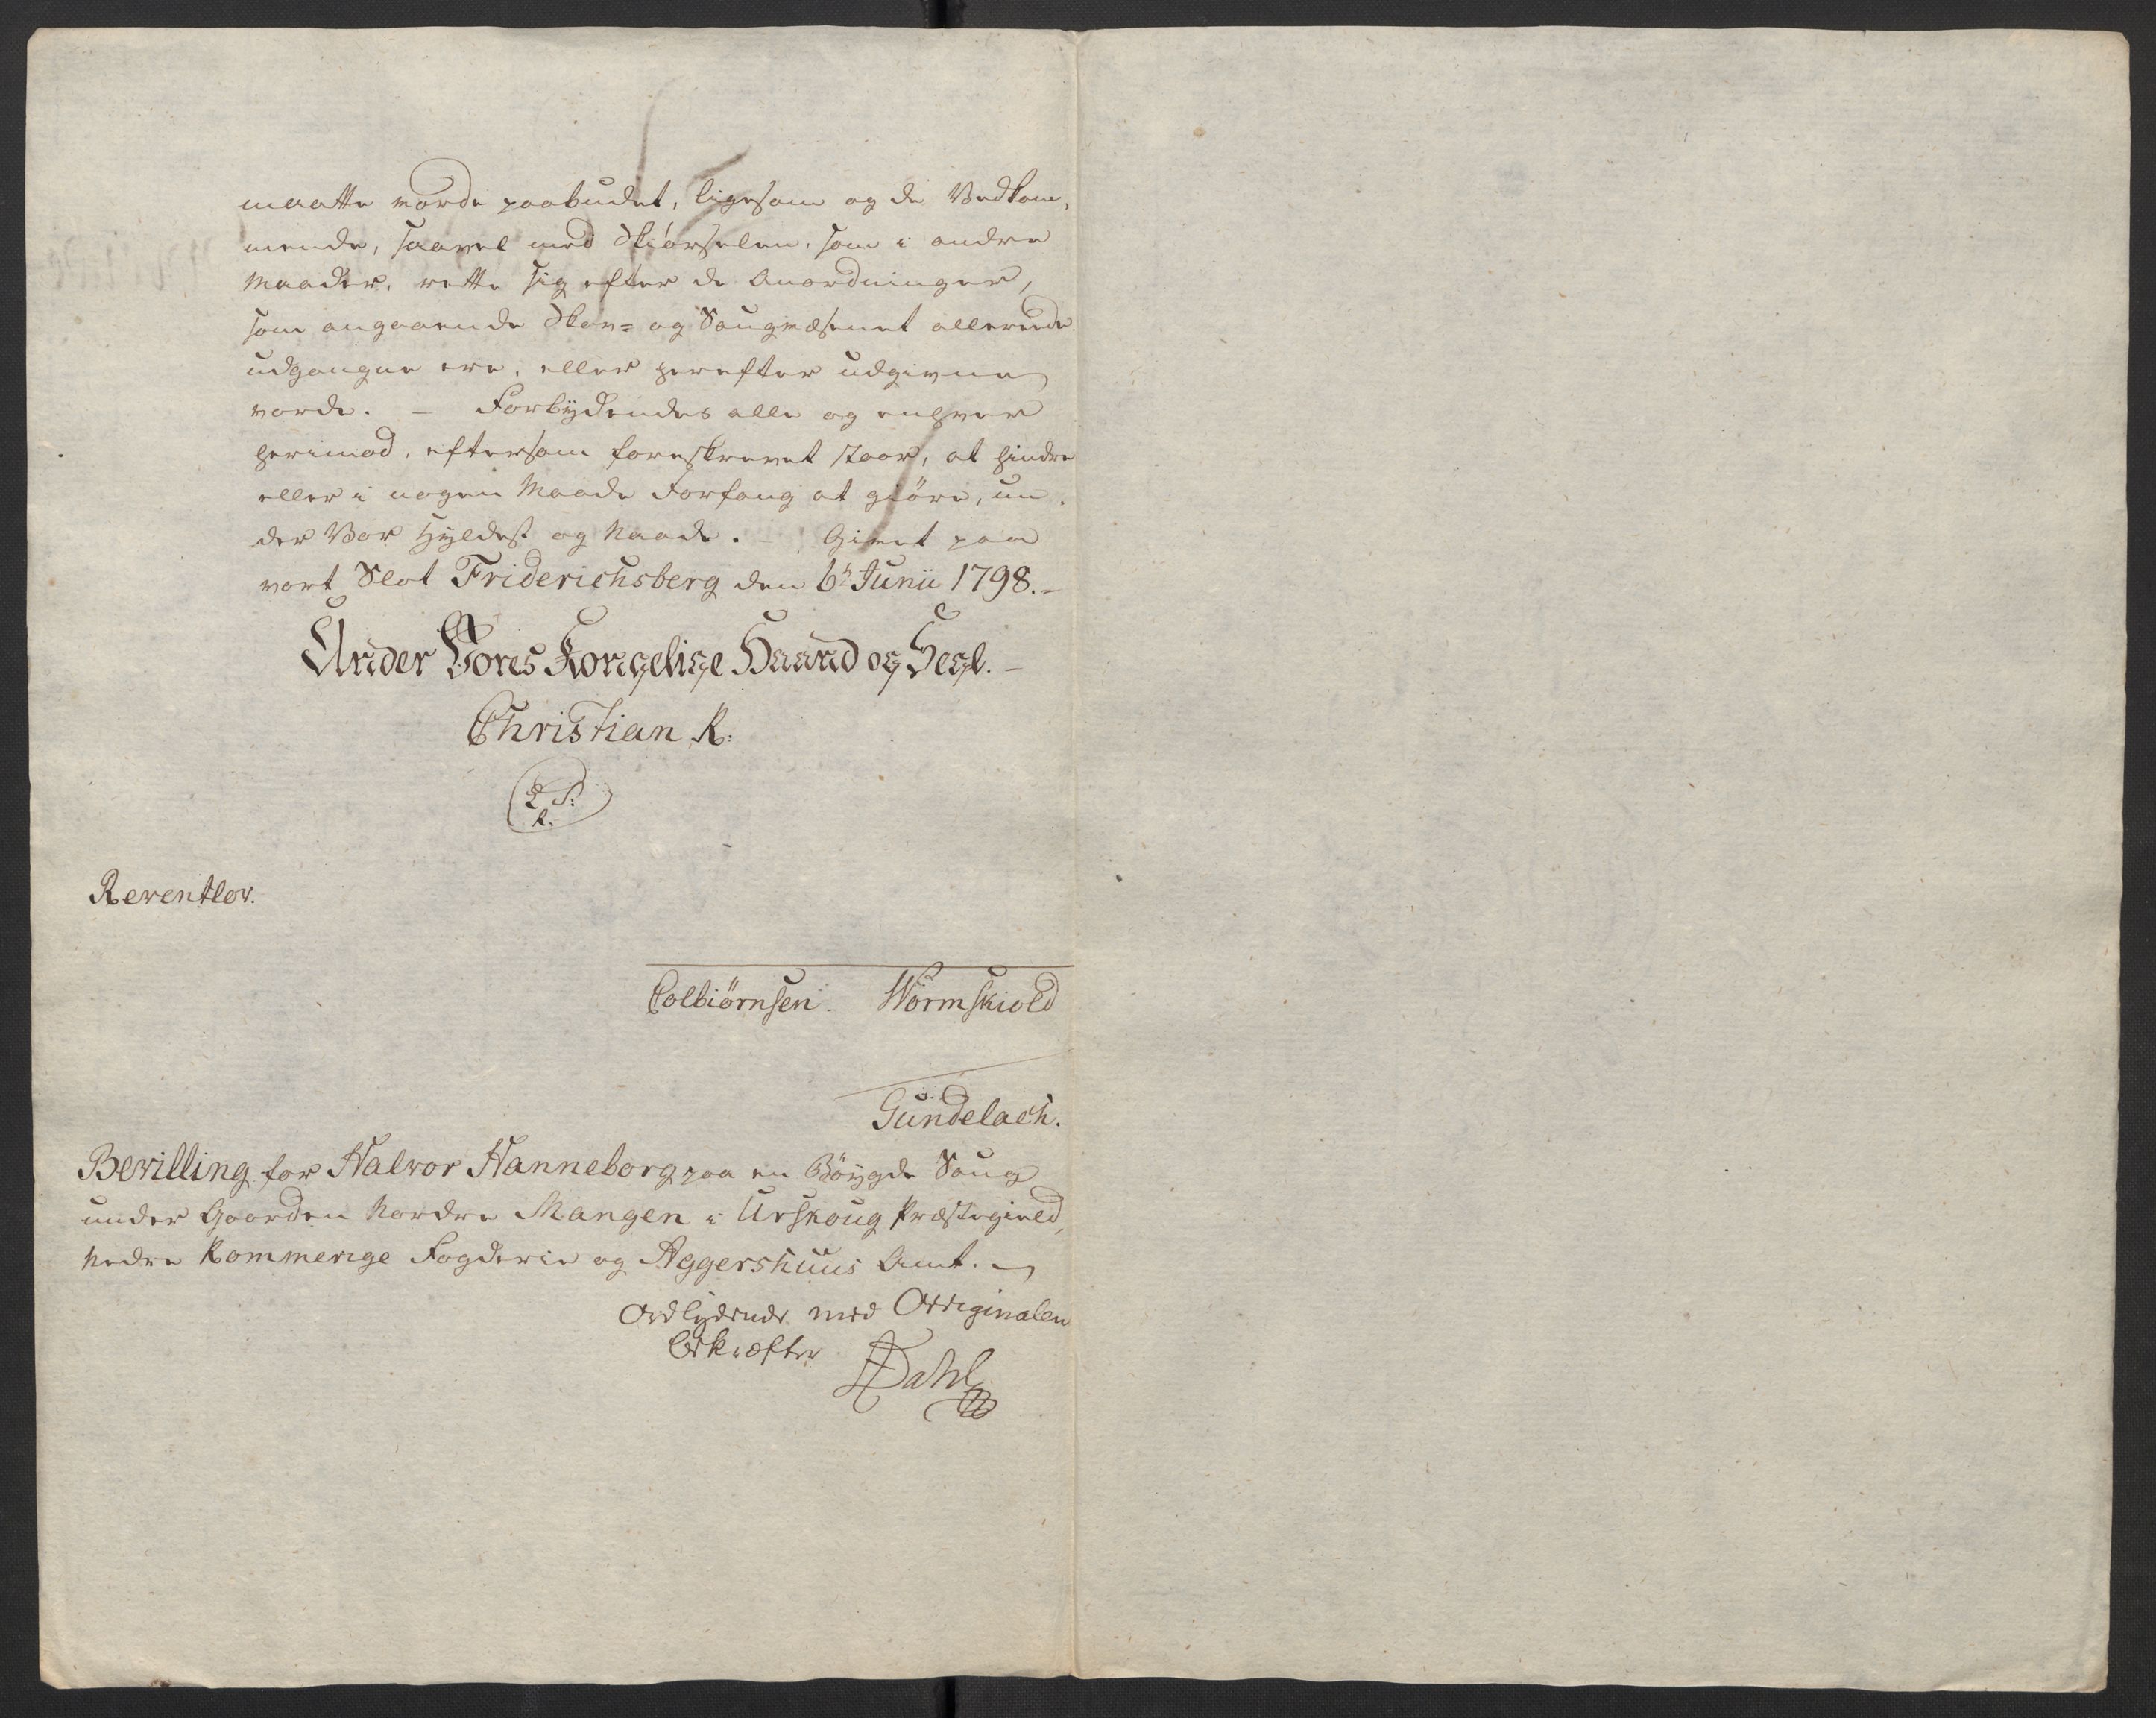 maatte vorde paabudet, ligesom og de Vedkom,
mende, saavel med Skiørselen, som i andre
Maader, rette sig efter de Anordninger,
som angaaende Skov= og Saugvæsenet allerede
udgangne ere, eller herefter udgivne
vorde. – Forbÿdendes alle og enhver
herimod, eftersom foreskrevet staar, at hindre
eller i nogen Maade Forfang at giöre, un,
der Vor Hÿldest og Naade. – Givet paa
vort Slot Friderichsberg den 6te Junii 1798. –
Under Vores Kongelige Haand og Segl. –
Christian R.
L. S.
R.
Reventlov.
Colbiørnsen. Wormskiold
Gündelach.
Bevilling for Halvor Hanneborg paa en Böÿgde Saug
under Gaarden Nordre Mangen i Urskoug Præstegield,
Nedre Rommerige Fogderie og Aggershuus Amt. –
Ordlydende med Orriginalen
bekræfter Dahl